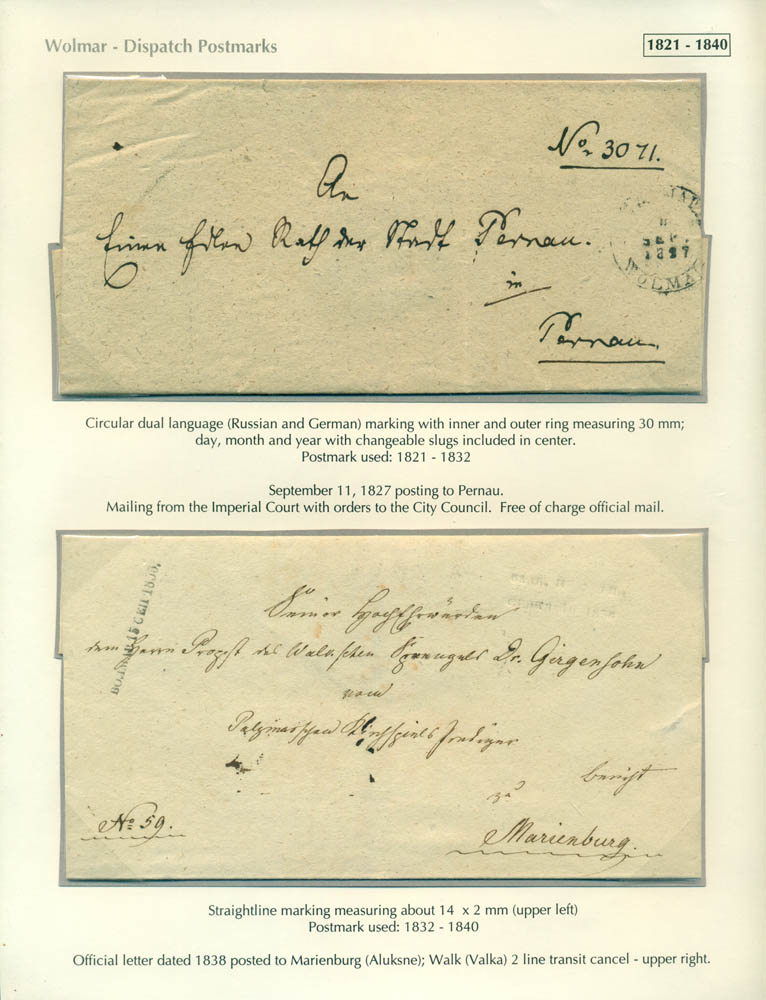 Wolmar - Dispatch Postmarks
1821 - 1840
No 3071.
An
Einen Edlen Rath der Stadt Pernau.
in
Pernau.
1827
WOLMAR
Circular dual language (Russian and German) marking with inner and outer ring measuring 30 mm;
day, month and year with changeable slugs included in center.
Postmark used: 1821 - 1832
September 11, 1827 posting to Pernau.
Mailing from the Imperial Court with orders to the City Council. Free of charge official mail.
Seiner Hochehrwürden
dem Herrn Propst des Walkschen Sprengels Dr. Girgensohn
vom
Prediger
Bericht
zu
No 59.
Marienburg.
Straightline marking measuring about 14 x 2 mm (upper left)
Postmark used: 1832 - 1840
Official letter dated 1838 posted to Marienburg (Aluksne); Walk (Valka) 2 line transit cancel - upper right.